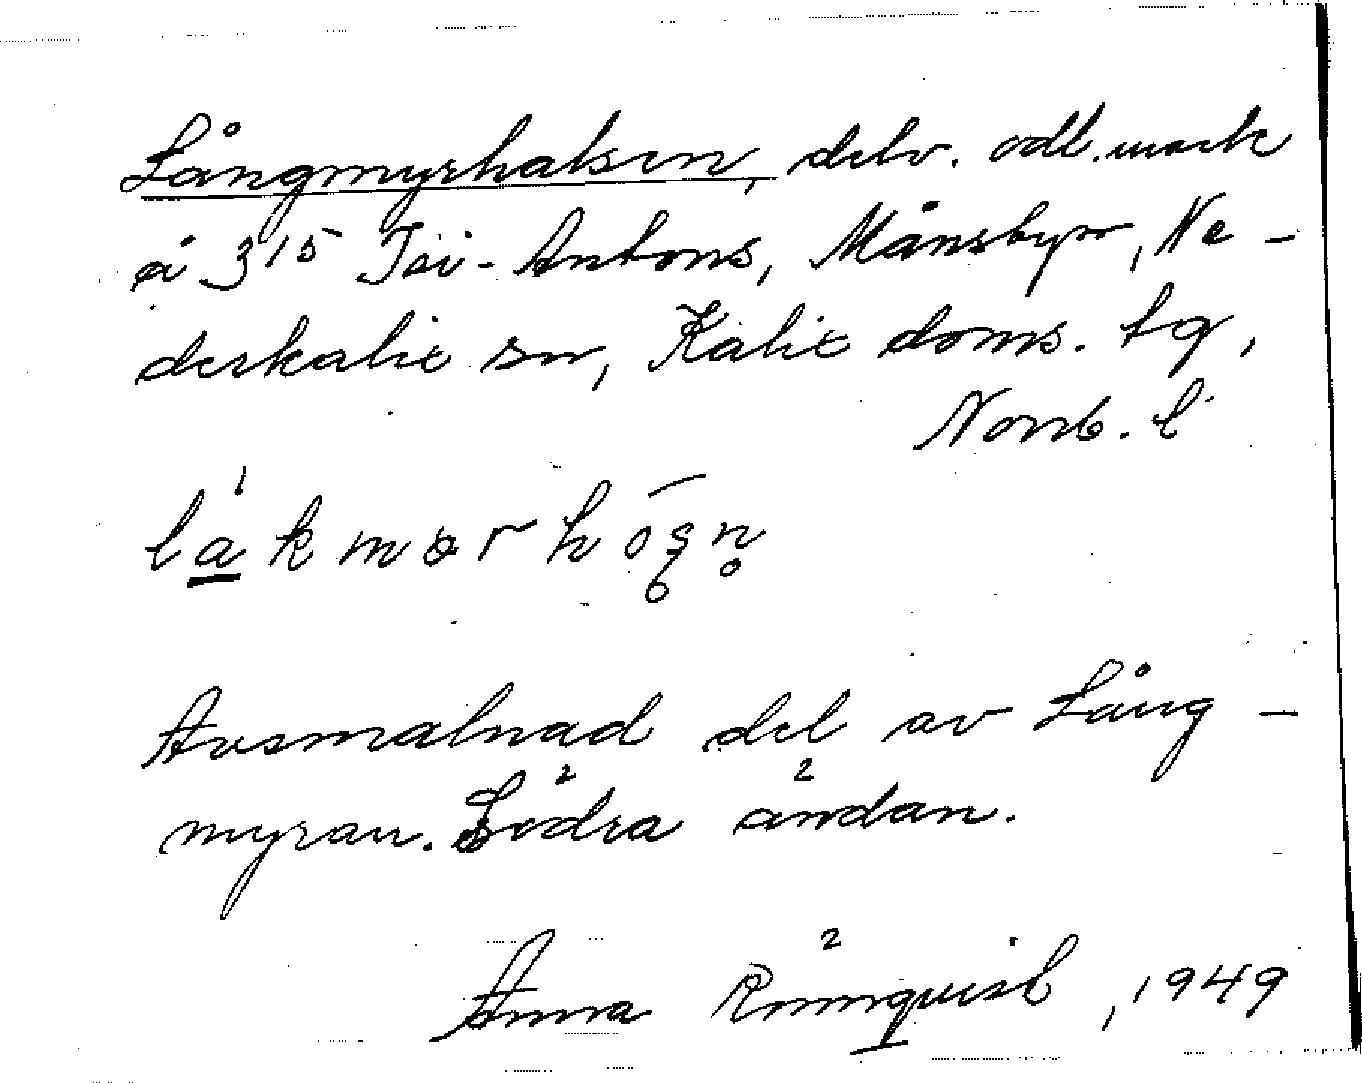 Långmyrhalsen, delv. odl. mark
å 3¹⁵ Isi-Antons, Månsbyn, Ne-
derkalix sn, Kalix doms. tg,
Norrb. l
Avsmalnad del av Lång-
myran. Södra ändan.
Anna Rönnqvist, 1949